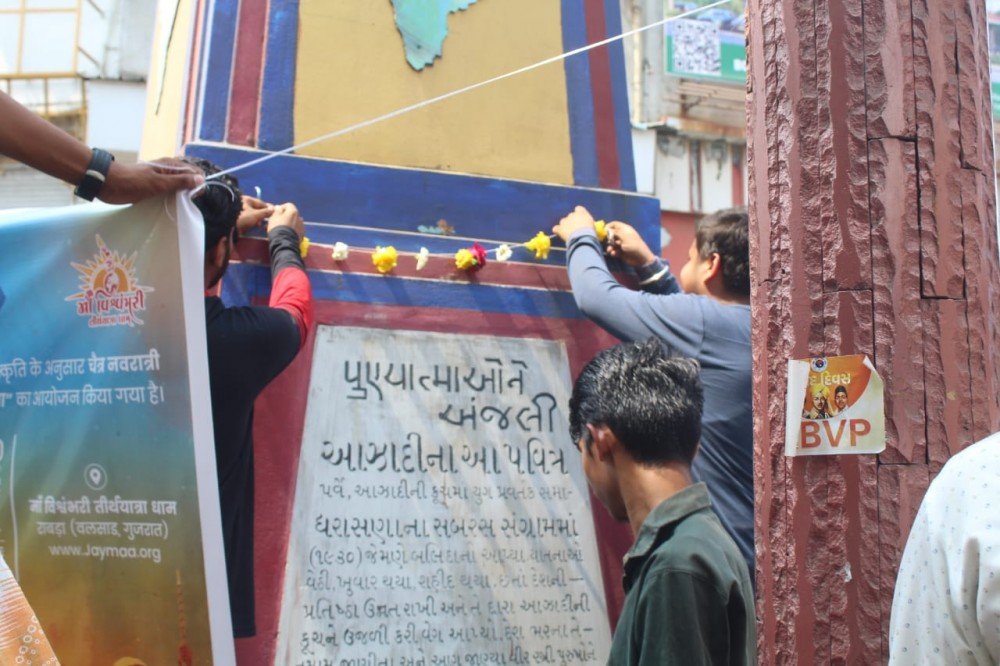 માઁ વિશ્વંભરી
તીર્થયાત્રા ધામ
कृति के अनुसार चैत्र नवरात्री
का आयोजन किया गया है।
माँ विश्वंभरी तीर्थयात्रा धाम
राबड़ा (वलसाड, गुजरात)
www.Jaymaa.org
પુણ્યાત્માઓને
અંજલી
આઝાદીના આ પવિત્ર
પર્વે, આઝાદીની કૂચમાં યુગ પ્રવર્તક સમા-
ધરાસણાના સબરસ સંગ્રામમાં
(૧૯૩૦) જેમણે બલિદાનો આપ્યા, યાતનાઓ
વેઠી, ખુવાર થયા, શહીદ થયા,
પ્રતિષ્ઠા ઉન્નત રાખી અને તે દ્વારા આઝાદીની
કૂચને ઉજળી કરી, વેગ આપ્યો,
દિવસ
BVP